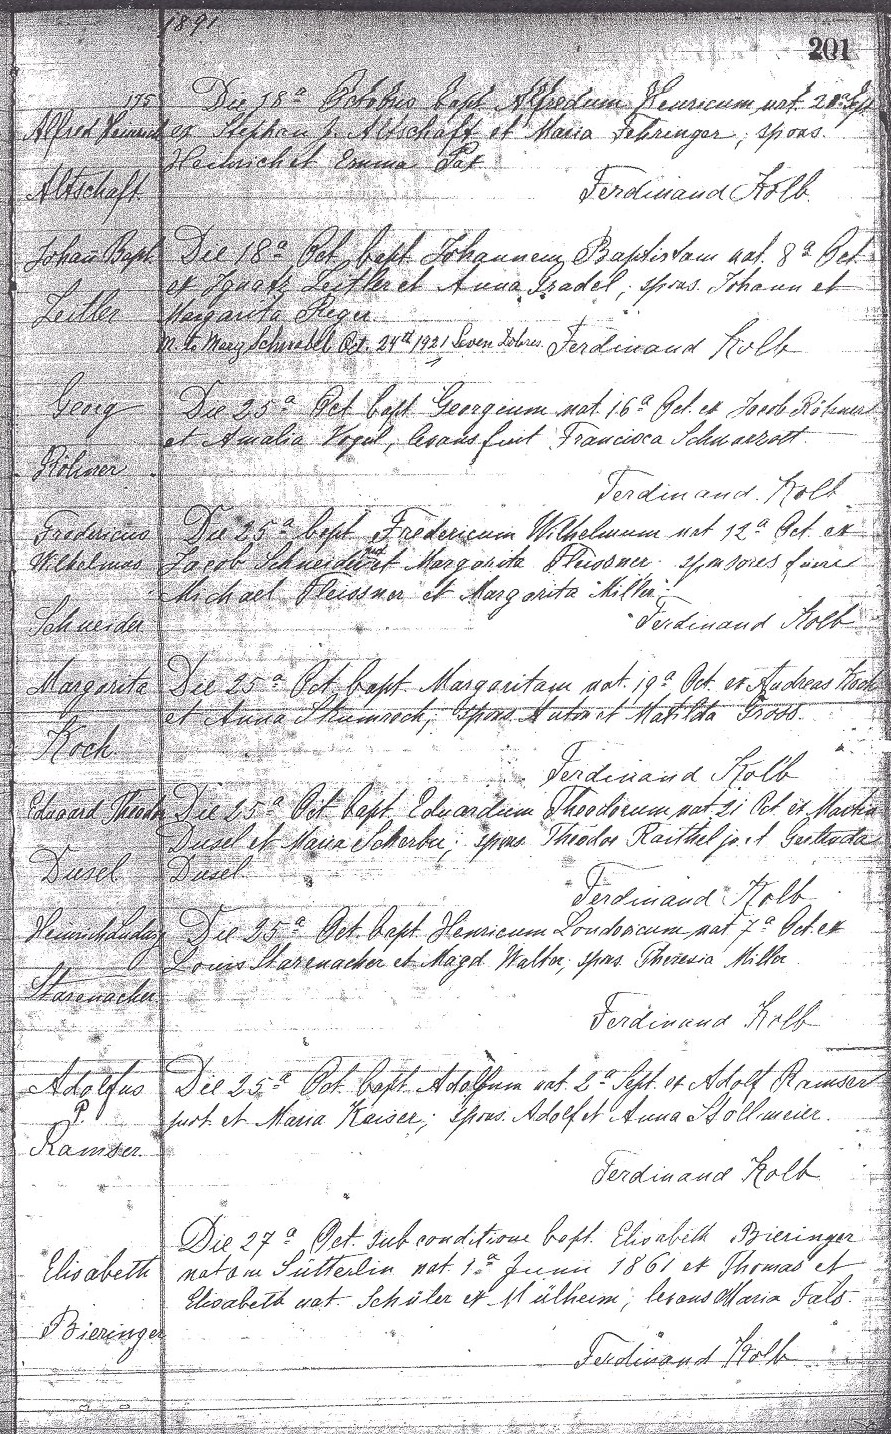 1891
201
175
Alfred Heinrich
Altschaft.
Die 18a Octobris bapt. Alfredum Henricum nat. Sept.
ex Stephan J. Altschaft et Maria Fehringer; spons.
Heinrich et Emma Sax
Ferdinand Kolb.
Johan Bapt.
Zeitler
Die 18a Oct. bapt. Johannem Baptistam nat. 8a Oct.
ex Ignatz Zeitler et Anna Gradel; spons. Johann et
Margarita Reger
M. to Marg Schwabl Oct. 24th 1921 Seven Dolors. Ferdinand Kolb
Georg
Röhner
Die 25a Oct bapt Georgium nat. 16a Oct. ex Jacob Röhner
et Amalia Vogel, levans fuit Francisca Schwarzott.
Ferdinand Kolb
Fredericus
Wilhelmus
Schneider
Die 25a bapt Fredericum Wilhelmum nat 12a Oct. ex
Jacob Schneider et Margarita Fleissner sponsores fuere
Michael Fleissner et Margarita Miller;
Ferdinand Kolb
Margarita
Koch.
Die 25a Oct. bapt Margaritam nat. 19a Oct. ex Andreas Koch
et Anna; spons. Anton et Matilda Gross.
Ferdinand Kolb
Eduard Theodor
Dusel
Die 25a Oct bapt. Eduardum Theodorum nat 21 Oct ex Martin
Dusel et Maria Scherbe; spons Theodor Raithel jr. et
Dusel
Ferdinand Kolb
Heinrich Ludwig
Starenacher
Die 25a Oct. bapt. Henricum nat 7a Oct. ex
Louis Starenacher et Magd Walter, spons Theresia Miller
Ferdinand Kolb
Adolfus
P.
Ramser.
Die 25a Oct. bapt. Adolfum nat. 2a Sept. ex Adolf Ramser
prot et Maria Kaiser; spons. Adolf et Anna Stollmeier.
Ferdinand Kolb
Elisabeth
Bieringer
Die 27a Oct. sub conditione bapt. Elisabeth Bieringer
natam Sütterlin nat. 1a Junii 1861 ex Thomas et
Elisabeth nat. Schüler ex Mülheim; levans Maria Fals.
Ferdinand Kolb